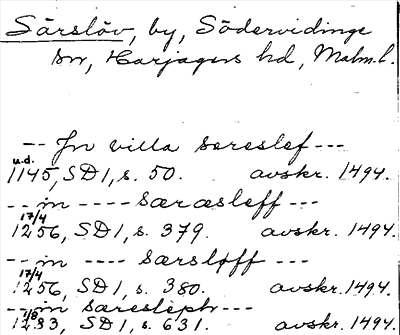 Särslöv, by, Södervidinge
sn, Harjagers hd, Malm.l.
-- Jn villa sereslef ---
u.d.
1145, SD1, s. 50. avskr. 1494.
-- in ---- særæsleff ---
17/4
1256, SD1, s. 379. avskr. 1494.
-- in ---- særsløff ---
17/4
1256, SD1, s. 380. avskr. 1494.
-- in særesleph --
1283, SD1, s. 631. avskr. 1494.